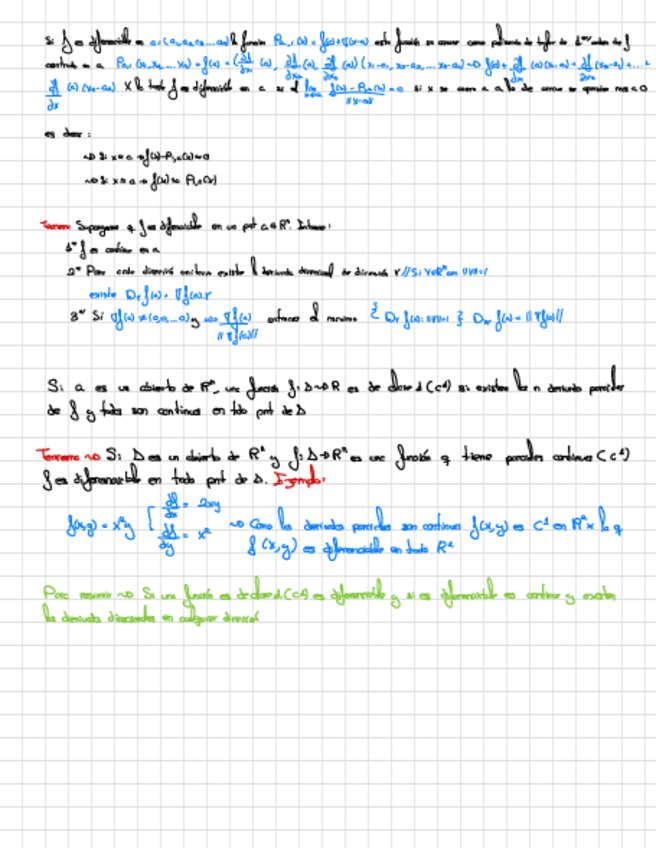 Si f es diferenciable en a=(a₁,a₂,a₃...aₙ) la función Pₐ,₁(x) = f(a)+∇(x-a) esta función se conoce como polinomio de taylor de 1er orden de f
centrado en a Pₐ,₁ (x₁,x₂,...xₙ) = f(a) + (∂f/∂x₁ (a), ∂f/∂x₂ (a), ∂f/∂xₙ (a)) (x₁-a₁, x₂-a₂,... xₙ-aₙ) → f(a) + ∂f/∂x₁ (a)(x₁-a₁) + ∂f/∂x₂ (x₂-a₂)+...+
∂f/∂x (a) (xₙ-aₙ) X lo tanto f es diferenciable en a si el lim f(x)-Pₐ,₁(x)/||x-a|| = 0 si x se acerca a a lo de arriba se aproxima mas a 0
es decir:
→ Si x≈a → f(x)-Pₐ,₁(x)≈0
→ Si x≈a → f(x)≈ Pₐ,₁(x)
Teorema Supongamos q f es diferenciable en un pnt a∈Rⁿ. Entonces:
1º f es continua en a
2º Para cada dirección unitaria existe la derivada direccional de dirección v // Si v∈Rⁿ con ||v||=1
existe Dᵥ f(a) = ∇f(a)·v
3º Si ∇f(a) ≠ (0,0,...0) y w = ∇f(a)/||∇f(a)|| entonces el maximo { Dᵥ f(a): ||v||=1 } D_w f(a) = ||∇f(a)||
Si a es un abierto de Rⁿ, una función f: D→R es de clase 1 (C¹) si existen las n derivadas parciales
de f y todas son continuas en todo pnt de D
Teorema → Si D es un abierto de Rⁿ y f: D→Rⁿ es una función q tiene parciales continuas (C¹)
f es diferenciable en todo pnt de D. Ejemplo:
f(x,y) = x²y [ ∂f/∂x = 2xy
∂f/∂y = x² → Como las derivadas parciales son continuas f(x,y) es C¹ en R² x lo q
f(x,y) es diferenciable en todo R²
Para resumir → Si una función es de clase 1 (C¹) es diferenciable y si es diferenciable es continua y existen
las derivadas direccionales en cualquier dirección